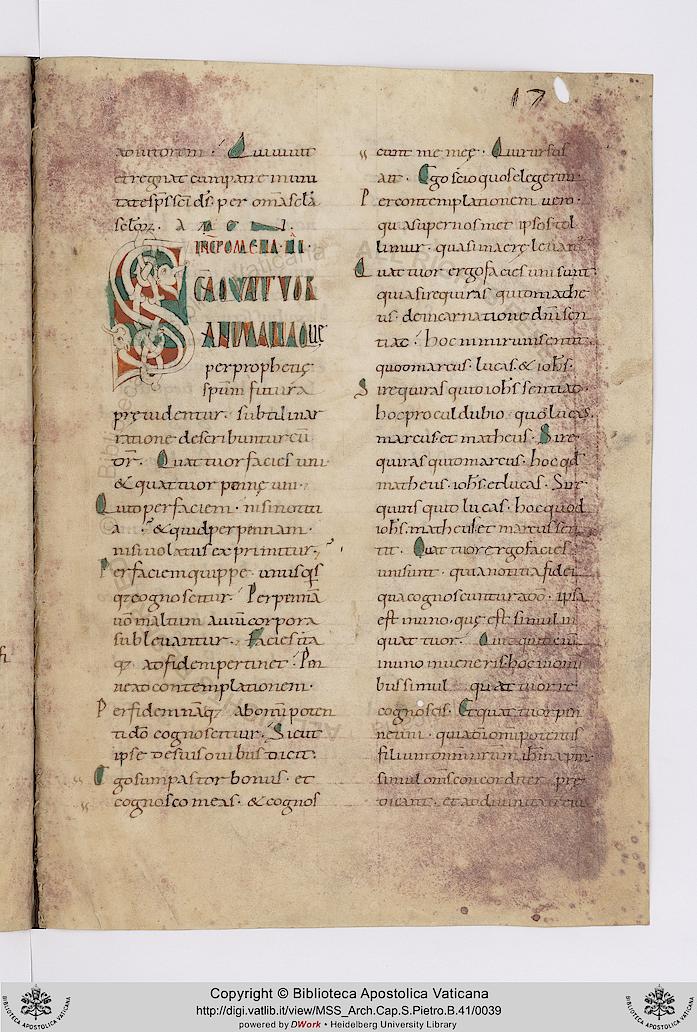 17
adiutorem. Qui uiuit
et regnat cum patre in uni
tate sp̅s sc̅i d̅s. per om̅a sc̅la
sc̅lor̅.
INCP OMELIA
SCA QUATTUOR
ANIMALIA QUE
per prophetię
sp̅m futura
pręuidentur. subtili nar
ratione describuntur cu̅
Quattuor facies uni
& quattuor pennę uni.
Quid per faciem. nisi notiti
a. & quid per pennam.
nisi uolatus exprimitur.
Per faciem quippe. unusq̅s
q; cognoscitur. Per penna̅
uō in altum auiu̅ corpora
subleuantur. Facies ita
q; ad fidem pertinet. Pen
na ad contemplationem.
Per fidem na̅q; ab omīpoten
ti dō cognoscimur. Sicut
ipse de suis ouibus dicit.
Ego sum pastor bonus. et
cognosco meas. & cognos
cunt me męę. Qui rursus
ait. Ego scio quos elegerim.
Per contemplationem uero.
qua super nosmet ipsos tol
limur. quasi in aera leuamur
Quattuor ergo facies uni sunt
quia si requiras quid mathe
us. de incarnatione dn̅i sen
tiat. hoc nimirum sentit
quod marcus. lucas. & ioh̅s.
Si requiras quid ioh̅s sentiat.
hoc procul dubio. quod lucas.
marcus. et matheus. Si re
quiras quid marcus. hoc qd̅
matheus. ioh̅s. et lucas. Si re
quiris quid lucas. hoc quod
ioh̅s. matheus. et marcus sen
tit. Quattuor ergo facies
uni sunt. quia notitia fidei
qua cognoscuntur a dō. ipsa
est in uno. quę est simul in
quattuor. Quicquid eni̅
in uno inueneris. hoc in omni
bus simul quattuor re
cognoscis. Et quattuor pen
nę uni. quia d̅i omipotentis
filium dominum nr̅um ih̅m xp̅m.
simul om̅s concorditer prę
dicant. et ad diuinitatem eius
Copyright © Biblioteca Apostolica Vaticana
http://digi.vatlib.it/view/MSS_Arch.Cap.S.Pietro.B.41/0039
powered by DWork • Heidelberg University Library
BIBLIOTECA APOSTOLICA VATICANA
BIBLIOTECA APOSTOLICA VATICANA